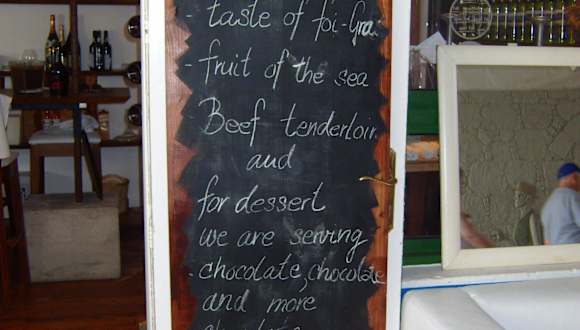 - taste of foi-Gra
- fruit of the sea
- Beef tenderloin
and
for dessert
we are serving
- chocolate, chocolate
and more
chocolate